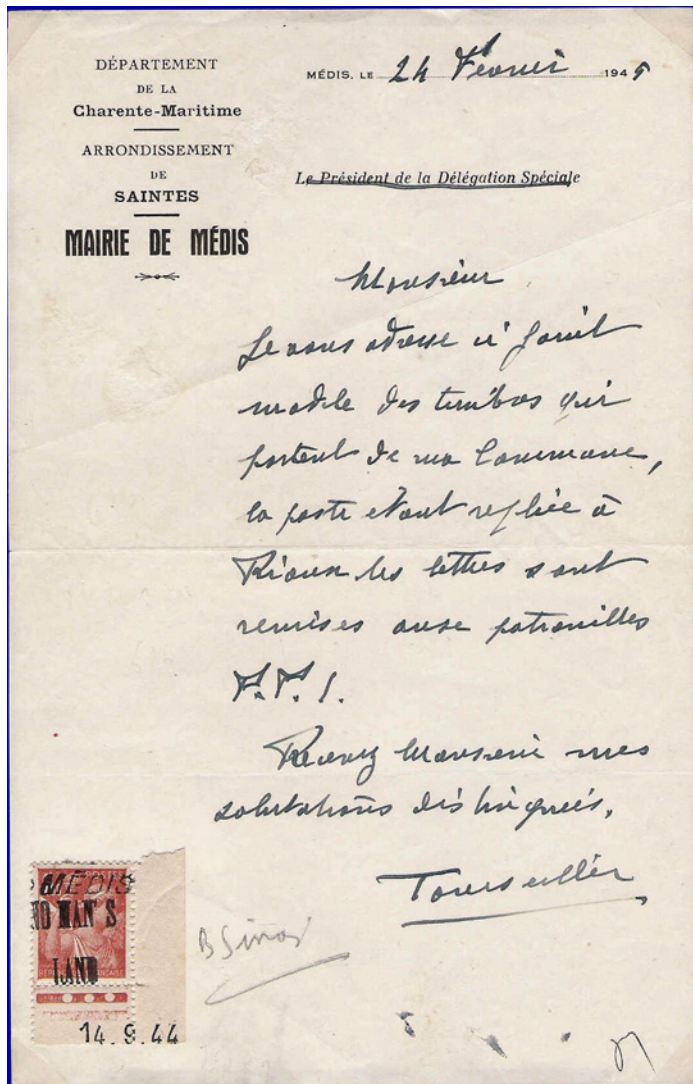 DÉPARTEMENT
DE LA
Charente-Maritime
ARRONDISSEMENT
DE
SAINTES
MAIRIE DE MÉDIS
MÉDIS, LE 24 Février 1945
Le Président de la Délégation Spéciale
Monsieur
Je vous adresse ci joint
modèle des timbres qui
partent de ma Commune,
la poste étant repliée à
Rioux les lettres sont
remises aux patrouilles
F.F.I.
Recevez Monsieur mes
salutations distinguées.
MÉDIS
NO MAN'S
LAND
14.9.44